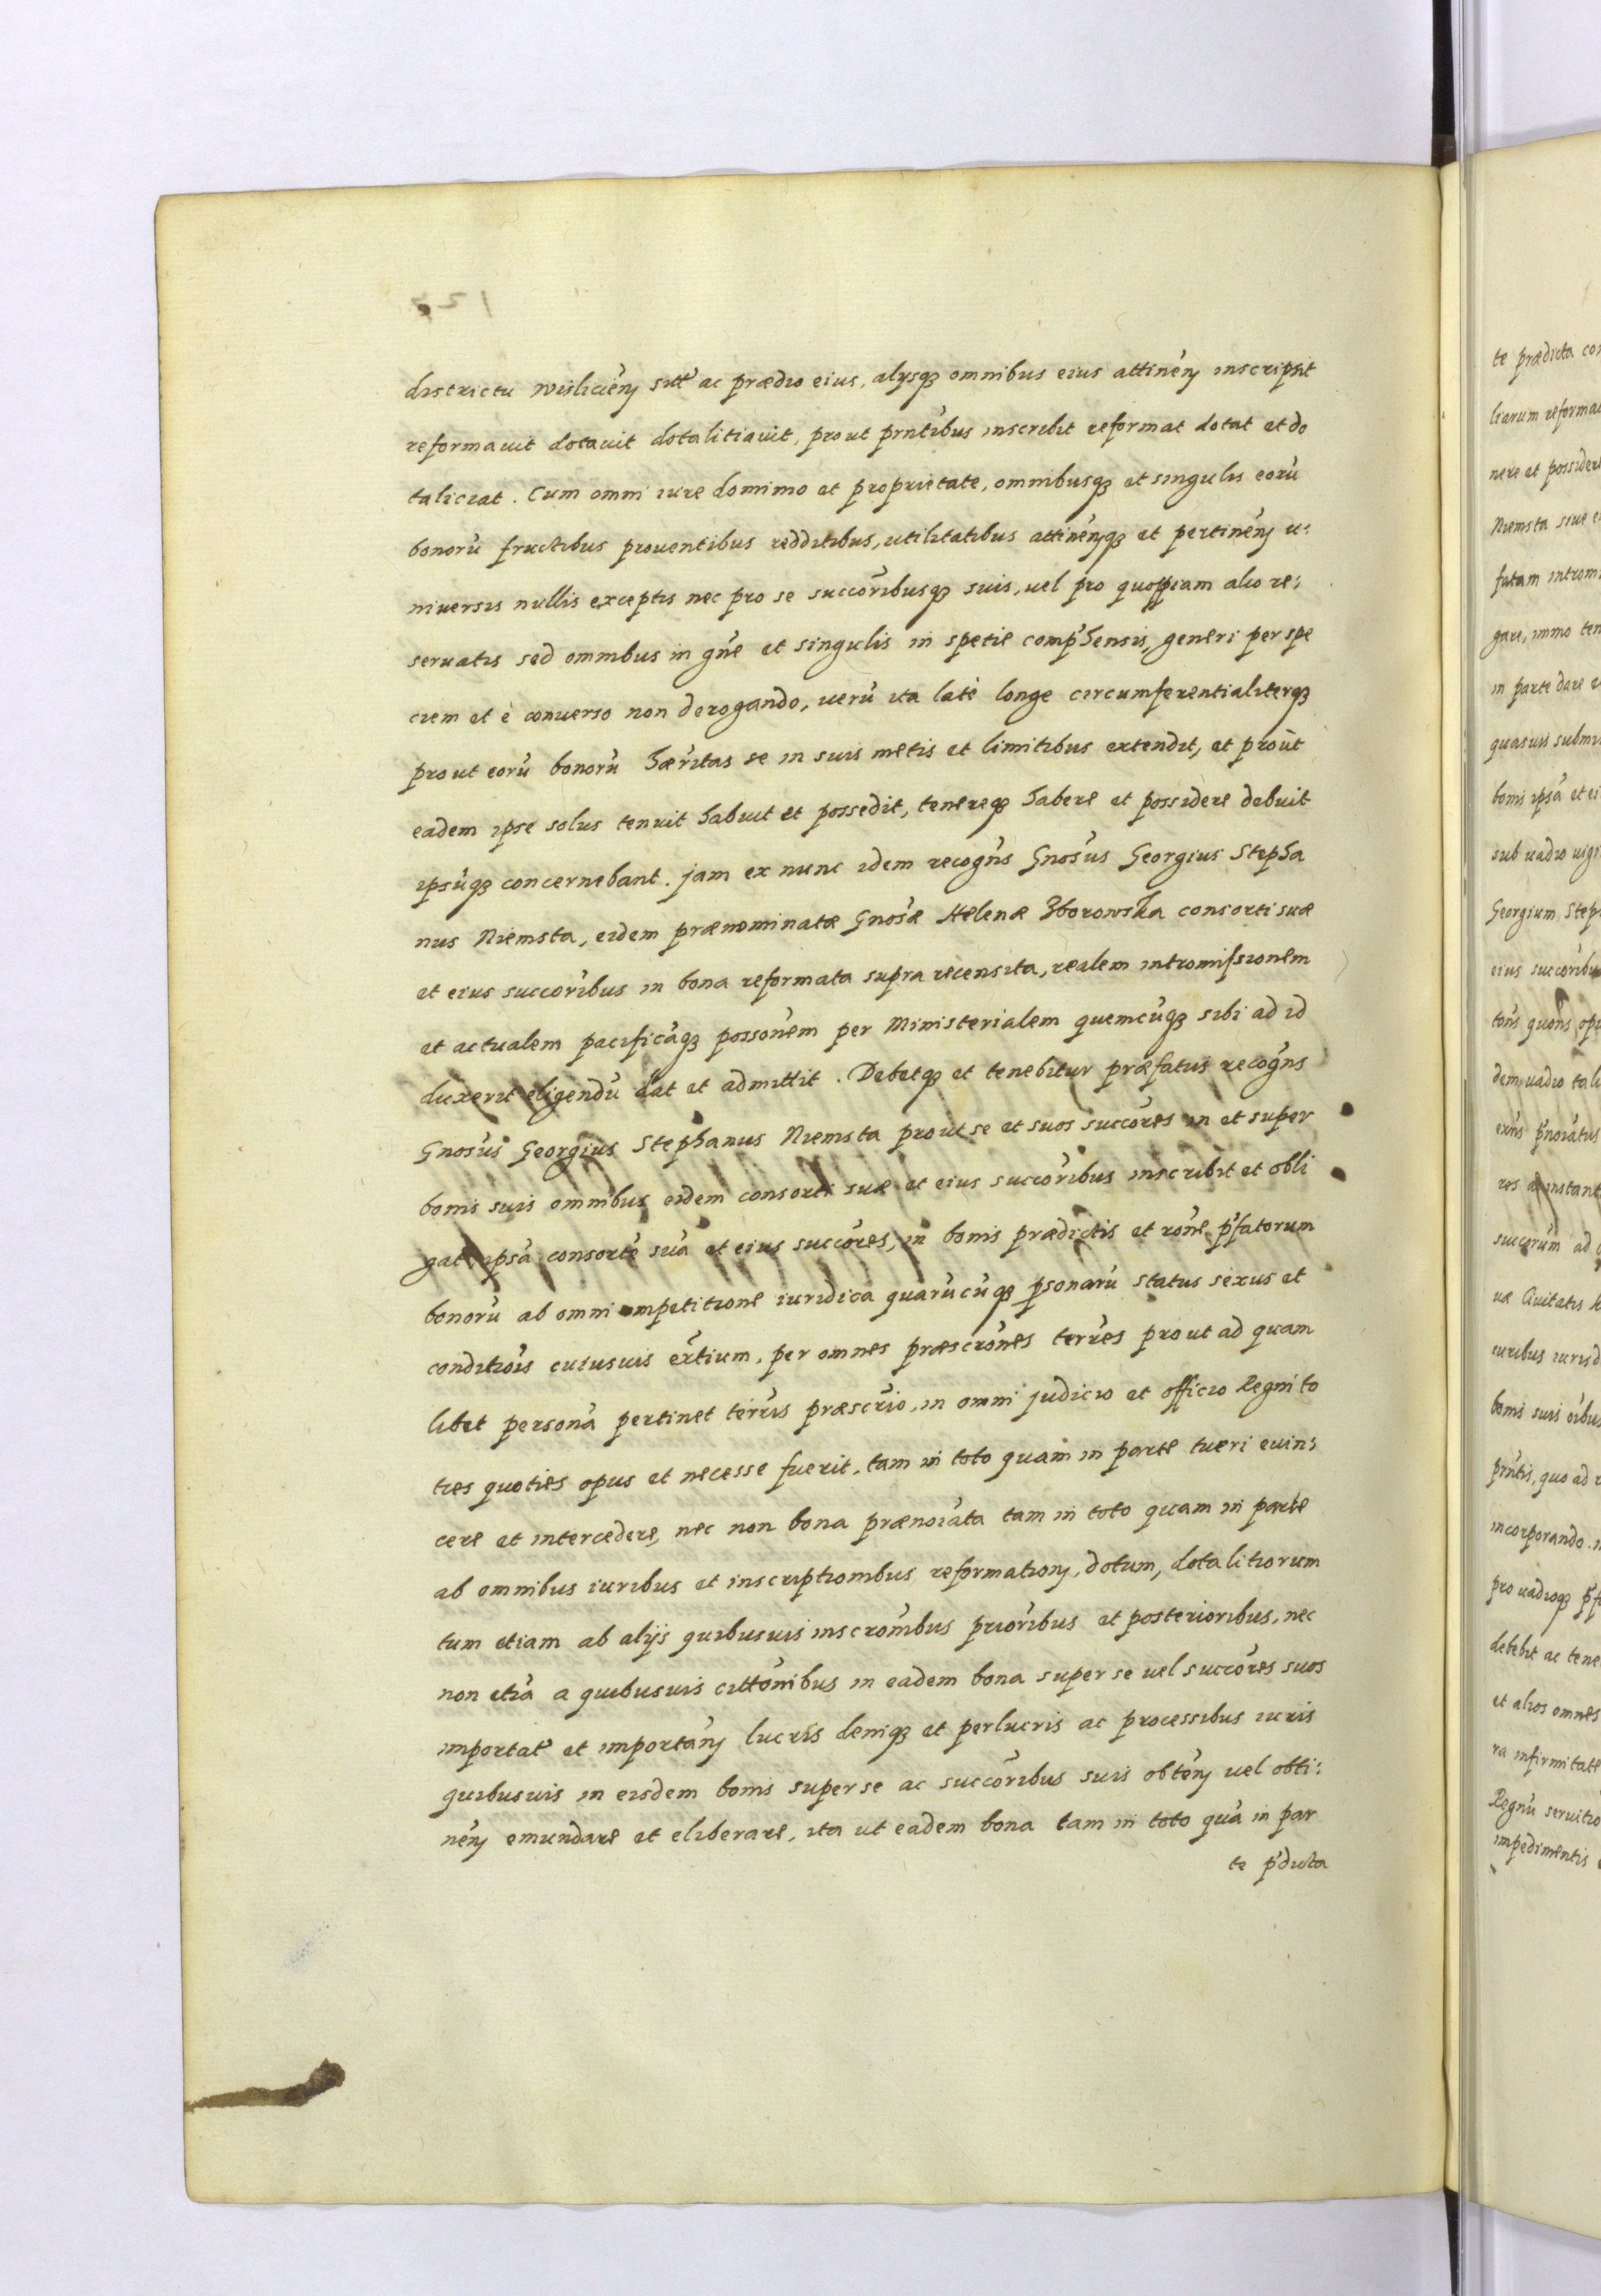 districtu Wisliciẽn sitt' ac prædio eius, alijsq3 omnibus eius attinẽn inscripsit
reformauit dotauit dotalitiauit, prout pñtibus inscribit reformat dotat et do
taliciat. Cum omni iure dominio et proprietate, omnibusq3 et singulis eorũ
bonorũ fructibus prouentibus redditibus, utilitatibus attinẽnq3 et pertinẽn u:
niuersis nullis exceptis nec pro se succoribusq3 suis, uel pro quopiam alio re:
seruatis sed omnibus in gñe et singulis in spetie comp'hensis, generi per spe
ciem et è conuerso non derogando, uerũ ita latè longe circumferentialiterq3
prout eorũ bonorũ hær̃itas se in suis metis et limitibus extendit, et proũt
eadem ipse solus tenuit habuit et possedit, tenereq3 habere et possidere debuit
ipsũq3 concernebant. jam ex nunc idem recogñs Gnosũs Georgius Stepha
nus Niemsta, eidem prænominatæ Gnosæ Helenæ Zborowska consorti suæ
et eius succoribus in bona reformata supra recensita, realem intromissionem
et actualem pacificãq3 possoñem per Ministerialem quemcũq3 sibi ad id
duxerit eligendũ dat et admittit. Debetq3 et tenebitur præfatus recogñs
Gnosũs Georgius Stephanus Niemsta prout se et suos succores in et super
bonis suis omnibus eidem consorti suæ et eius succoribus inscribit et obli
gat ipsã consortẽ suã et eius succores, in bonis prædictis et roñe p'fatorum
bonorũ ab omni impetitione iuridica quarũcũq3 psonarũ status sexus et
conditiõis cuiusuis ex̃tium, per omnes præscroñes terr̃es prout ad quam
libet personã pertinet terr̃is præscr̃io, in omni judicio et officio Regni to
ties quoties opus et necesse fuerit, tam in toto quam in parte tueri euin:
cere et intercedere, nec non bona prænoiãta tam in toto quam in parte
ab omnibus iuribus et inscriptionibus reformation, dotum, dotalitiorum
tum etiam ab alijs quibusuis inscroñibus prioribus et posterioribus, nec
non etiã a quibusuis cittoñibus in eadem bona super se uel succores suos
importat' et importãn lucris deniq3 et perlucris ac processibus iuris
quibusuis in eisdem bonis super se ac succoribus suis obtẽn uel obti:
nẽn emundare et eliberare, ita ut eadem bona tam in toto quã in par
te p'dicta
te prædicta con
liarum reformat
nere et possidere
Niemsta siue ei
fatam intromi
gare, immo ten
in parte dare e
quasuis submi
bonis ipsã et ei
sub uadio uigi
Georgium Step
eius succoribus
dem uadio tali
succorum ad
uæ Ciuitatis
iuribus iurisd
bonis suis oĩbus
pñtis, quo ad
incorporando
pro uadioq3
debebit ac tene
et alios omnes
ra infirmitate
Regnũ seruitio
impedimentis